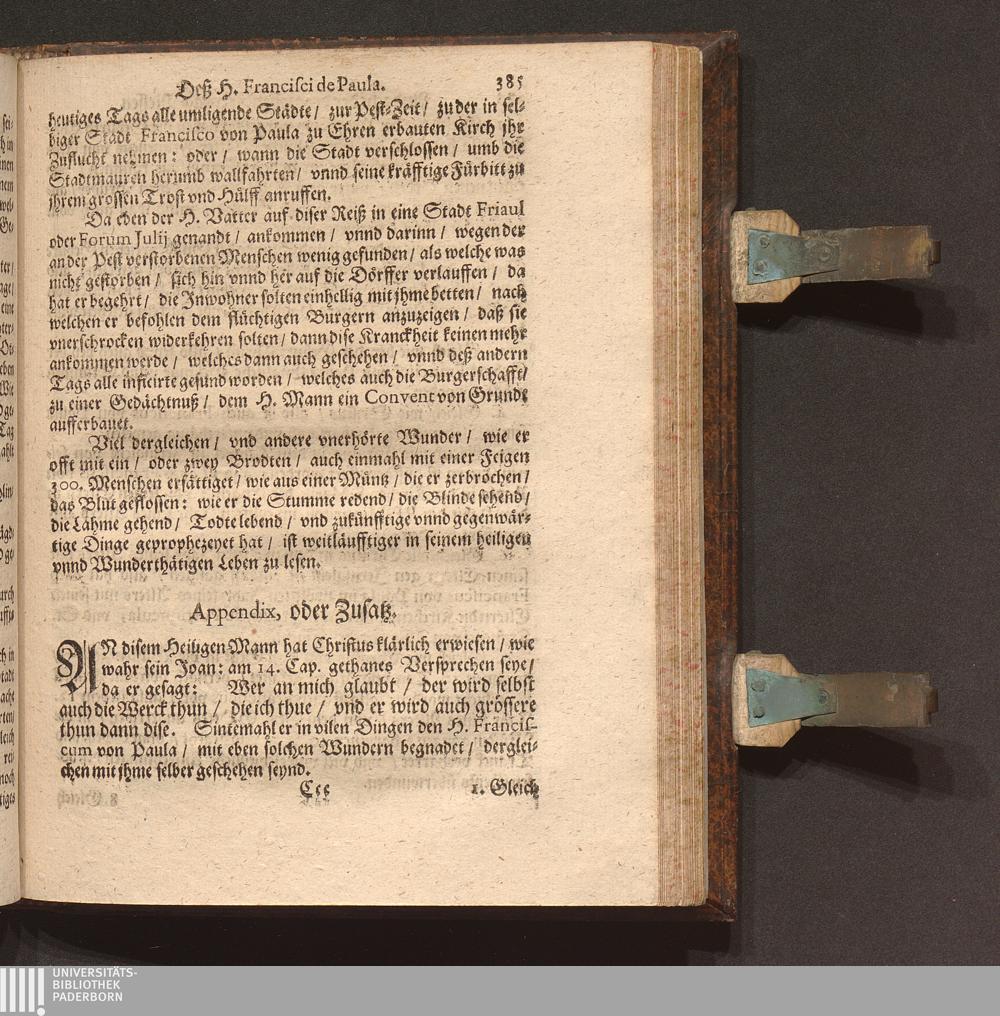 Deß H. Francisci de Paula. 385
heutiges Tags alle umligende Städte / zur Pest-Zeit / zu der in sel-
biger Stadt Francisco von Paula zu Ehren erbauten Kirch jhr
Zuflucht nehmen: oder / wann die Stadt verschlossen / umb die
Stadtmauren herumb wallfahrten / vnnd seine kräfftige Fürbitt zu
jhrem grossen Trost vnd Hülff anruffen.
Da eben der H. Vatter auf diser Reiß in eine Stadt Friaul
oder Forum Julij genandt / ankommen / vnnd darinn / wegen der
an der Pest verstorbenen Menschen wenig gefunden / als welche was
nicht gestorben / sich hin vnnd her auf die Dörffer verlauffen / da
hat er begehrt / die Inwohner solten einhellig mit jhme betten / nach
welchen er befohlen dem flüchtigen Burgern anzuzeigen / daß sie
vnerschrocken widerkehren solten / dann dise Kranckheit keinen mehr
ankommen werde / welches dann auch geschehen / vnnd deß andern
Tags alle inficirte gesund worden / welches auch die Burgerschafft /
zu einer Gedächtnuß / dem H. Mann ein Convent von Grunde
aufferbauet.
Viel dergleichen / vnd andere vnerhörte Wunder / wie er
offt mit ein / oder zwey Brodten / auch einmahl mit einer Feigen
300. Menschen ersättiget / wie aus einer Müntz / die er zerbrochen /
das Blut geflossen: wie er die Stumme redend / die Blinde sehend /
die Lahme gehend / Todte lebend / vnd zukünfftige vnnd gegenwär-
tige Dinge geprophezeyet hat / ist weitläufftiger in seinem heiligen
vnnd Wunderthätigen Leben zu lesen.
Appendix, oder Zusatz.
AN disem Heiligen Mann hat Christus klärlich erwiesen / wie
wahr sein Joan: am 14. Cap. gethanes Versprechen seye /
da er gesagt: Wer an mich glaubt / der wird selbst
auch die Werck thun / die ich thue / vnd er wird auch grössere
thun dann dise. Sintemahl er in vilen Dingen den H. Francis-
cum von Paula / mit eben solchen Wundern begnadet / derglei-
chen mit jhme selber geschehen seynd.
Ccc 1. Gleich
UNIVERSITÄTS-
BIBLIOTHEK
PADERBORN